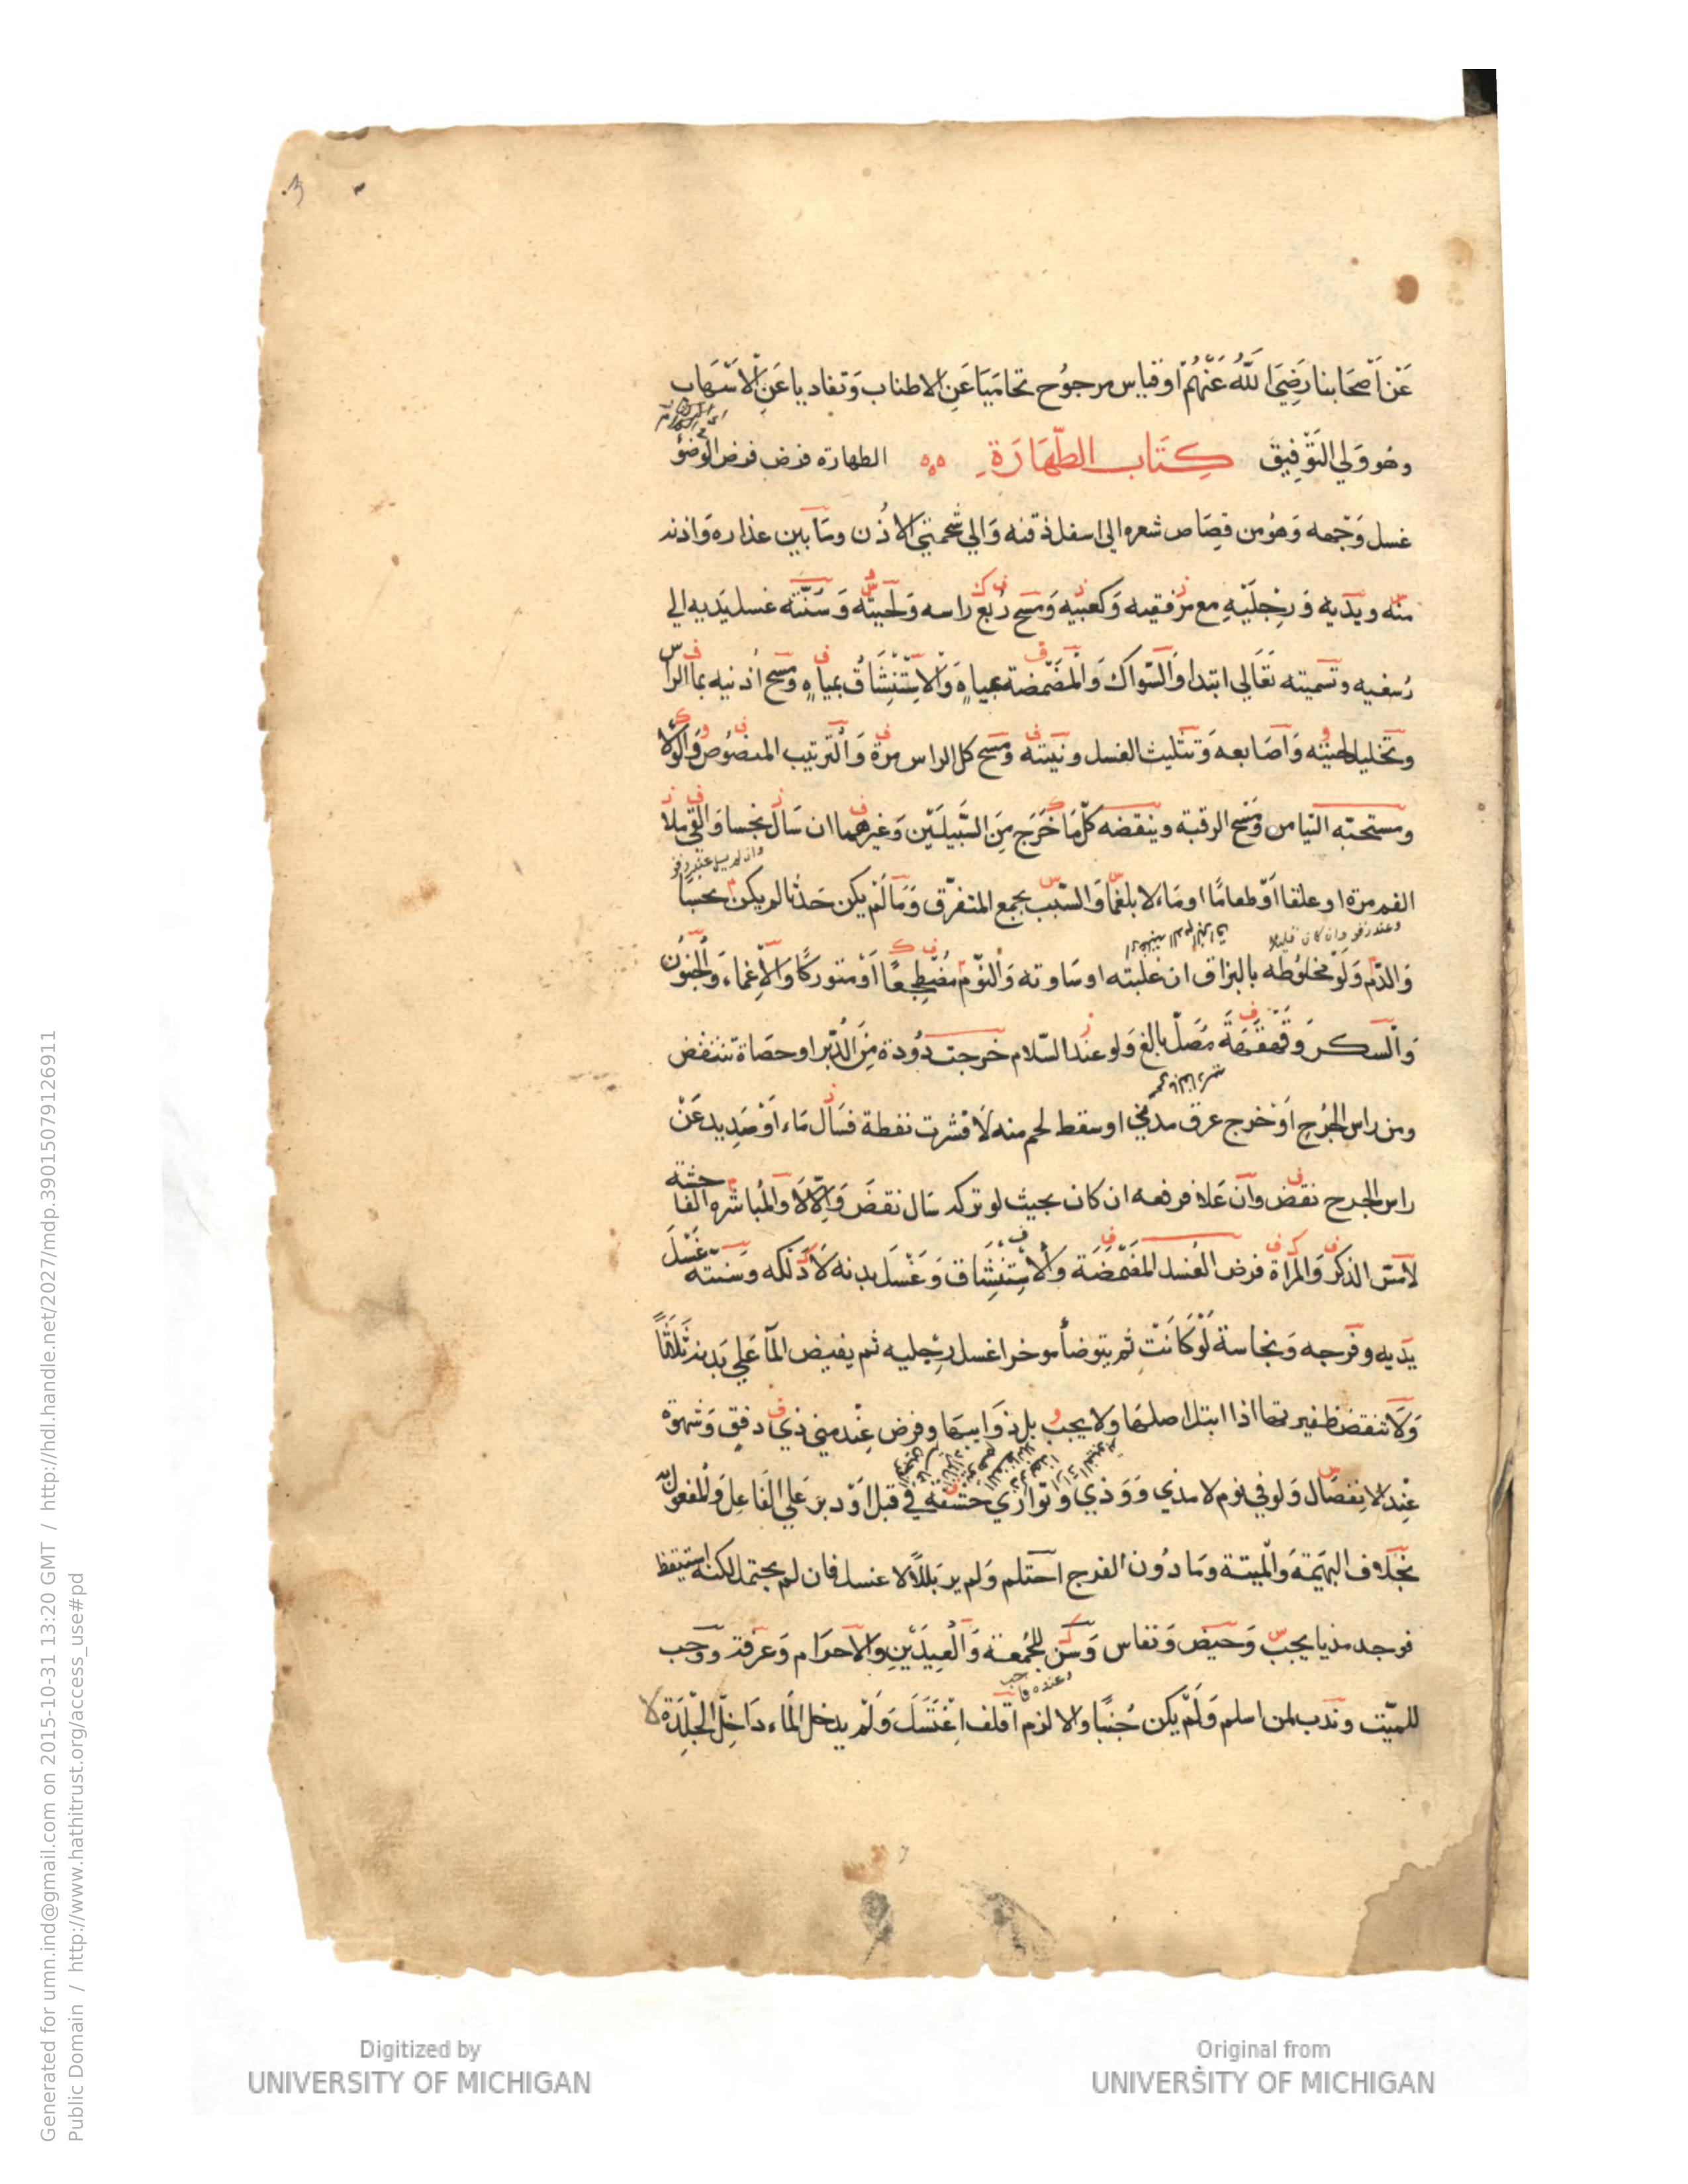 عَنْ اَصْحَابنا رَضِيَ اللّٰهُ عَنْهُمْ او قياس مرجوُح تحامَيا عَنِ الاطناب وَتفاديا عَنِ الاسْهَاب
وهُو وَلي التَوْفِيق كِتَاب الطَّهَارَة الطهارة فرض فرض الوضوُ
غسل وَجْهه وَهُو من قصَاص شعره الى اسفل ذقنه وَالي شحمتي الاذُن ومَا بين عذاره وَاذنه
منه ويدَيه وَرِجلَيْهِ مع مرفقيه وَكعبيه وَمسح رُبع راسه وَلحيته وَسُنّته غسل يَديه الي
رُسغيه وتسميته تَعَالي ابتدا وَالسّواك وَالمضمضة بمياهٍ وَالاسْتِنْشَاقُ بمياهٍ ومسح اُذنيه بما الراس
وتخليل لحيته وَاصَابعه وَتثليث الغسل ونيته ومسح كل الراس مرة وَالترتيب المنصُوص وَالولا
ومستحبّه التيامن وَمسح الرقبة وينقضه كلّ مَا خَرَج مِنَ السَّبيلَيْن وَغيرهما ان سَال نجسا وَالقي ملا
وان لم يسل عند زفر
الفم مرة او علقا اَوْ طعامًا او مَاء لا بلغمًا وَالسّبب يجمع المتفرّق وَمَا لمْ يكن حَدثا لم يكن نجسًا
وعند زفر وان كان قليلا
وَالدّم وَلَوْ مخلوُطه بالبزاق ان غلبته او سَاوته وَالنّوْم مُضطِجعًا اَوْ متوركًا وَالاِغماء وَالجنوُن
وَالسكر وَقهقَهَة مُصَلّ بالغ وَلو عند السّلام خرجت دُودة مِنَ الدُّبر او حصَاة تنتقض
ومن راس الجُرح اَوْ خرج عرق مدني او سقط لحم منه لَا قشرت نفطة فسَال مَاء اَوْ صَدِيد عَنْ
راس الجرح نقض وَان عَلا فرفعه ان كان بحيث لو تركه سَال نقضَ وَاِلّا لَا وَالمُباشرة الفاحشة
لا مسّ الذكر وَالمرْاة فرض الغُسل المضمَضَة وَالاسْتِنْشَاق وَغَسْل بدنه لَا دَلكه وَسنته غَسْل
يدَيه وفرجه وَنجاسة لَوْ كَانَتْ ثم يتوضأ موخرا غسل رِجليه ثم يفيض المآ عَلي بَدنه ثَلٰثًا
وَلَا تنقض ظفيرتها اذا ابتل اصلهَا ولا يجب بل ذوَايبهَا وفرض عِنْد مني ذي دفق وَشهوَة
عِنْد الانِفصَال وَلو في نوم لا مذي وَوَذي وتواري حشفه في قبل اوْ دبر عَلي الفَاعِل وَالمفعول به
بخلَاف البهيْمَة وَالميتة ومَا دُون الفرج احتلم وَلم ير بَللًا لا غسل فان لم يحتمل لكنه استيقظ
فوجد مذيا يجبُ وَحيض وَنفاس وَسُن للجُمعة وَالْعِيدَيْنِ وَالاحرَام وَعرَفة ووجب
للميّت وندب لمن اسلم وَلَمْ يكن جُنبًا والا لزم اقلف اغْتَسَلَ وَلَمْ يدخل المَاء دَاخِل الجْلِدَة لا
Generated for umn.ind@gmail.com on 2015-10-31 13:20 GMT / http://hdl.handle.net/2027/mdp.39015079126911
Public Domain / http://www.hathitrust.org/access_use#pd
Digitized by
UNIVERSITY OF MICHIGAN
Original from
UNIVERSITY OF MICHIGAN